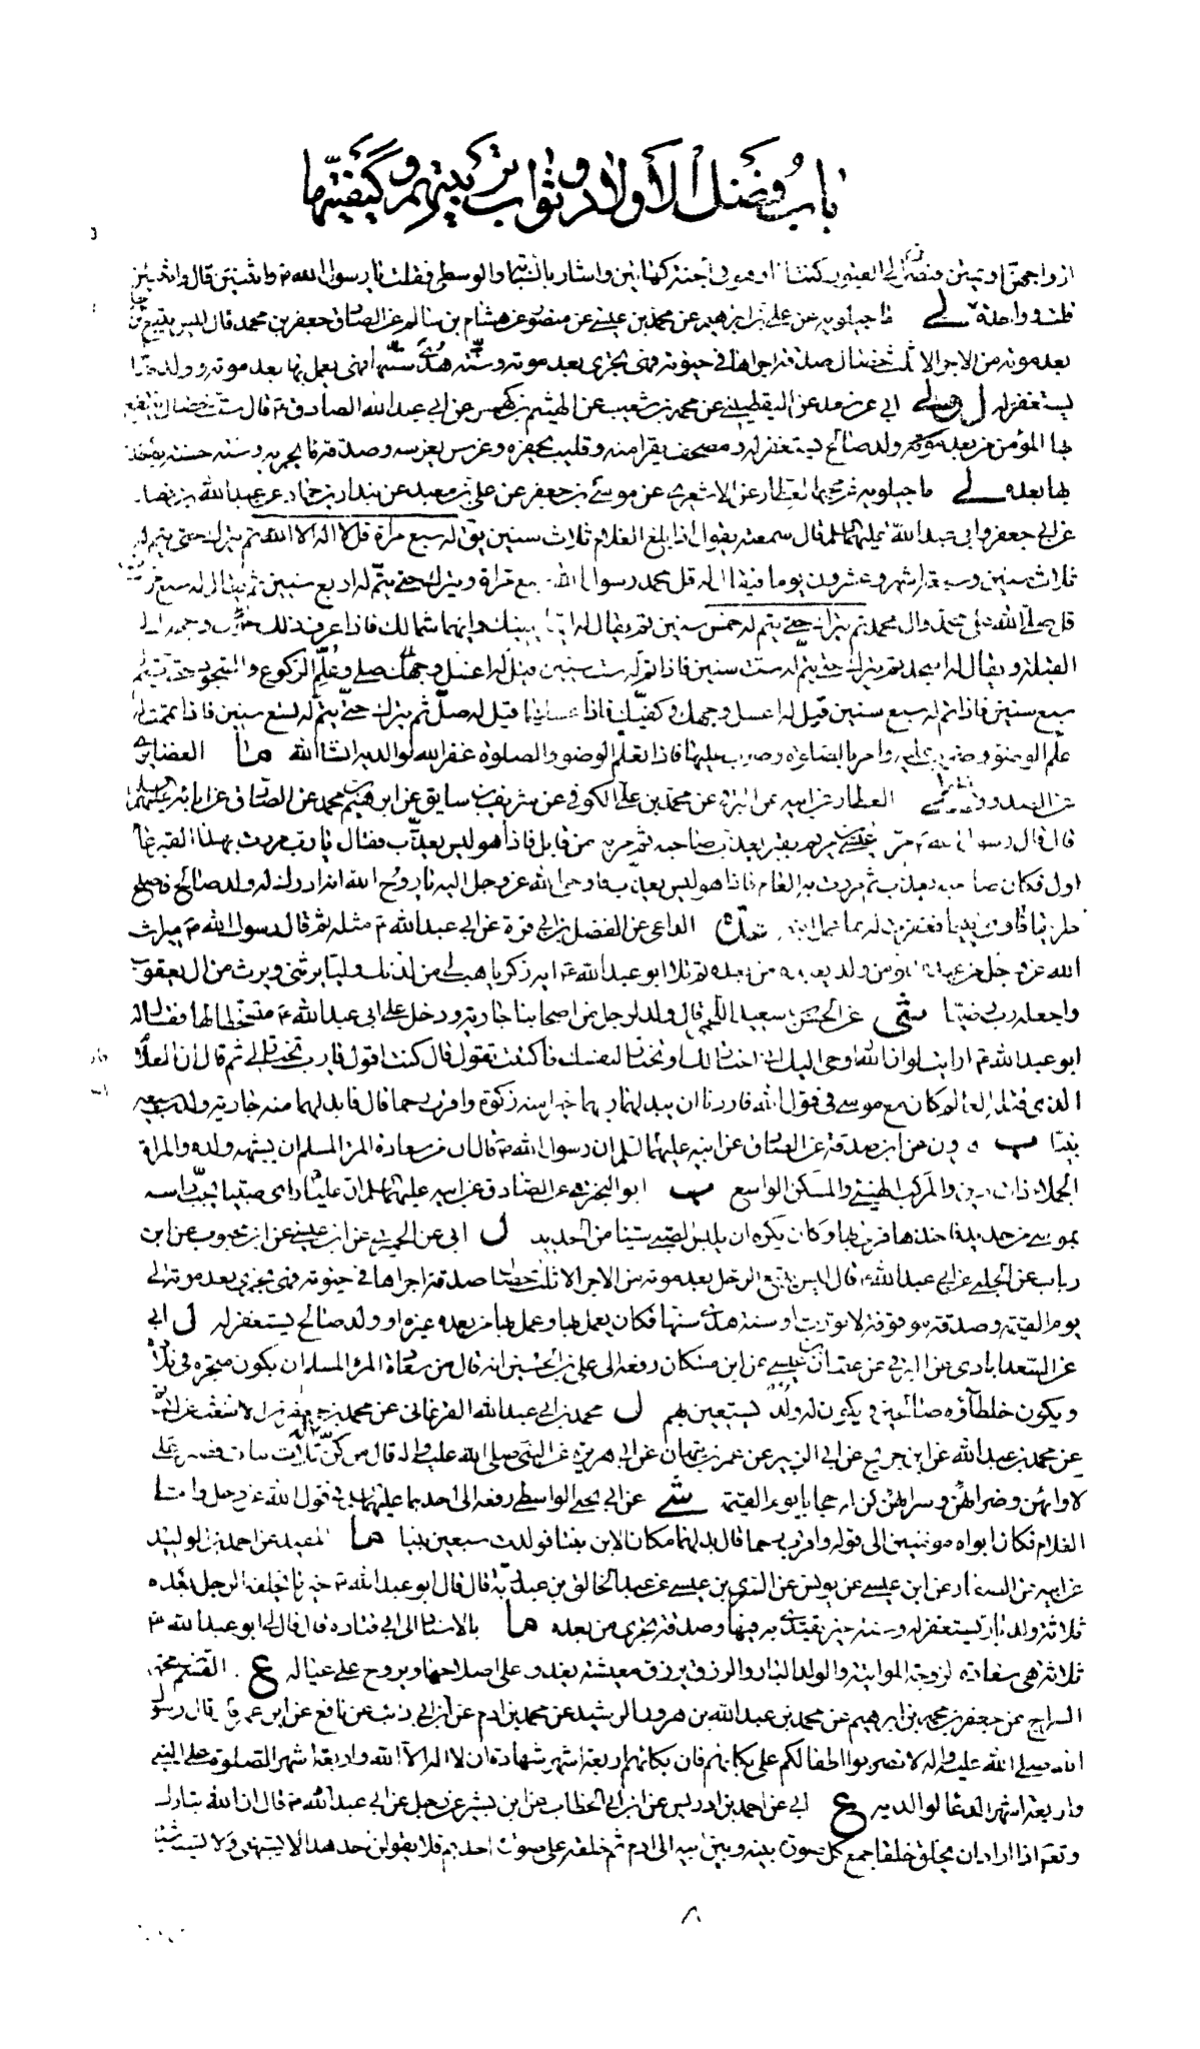 باب فضل الأولاد وثواب تربيتهم وكيفيتها
كهاتين واشار بالسبابة والوسطى فقلت يا رسول الله واثنتين قال واثنتين
قلت وواحدة لى ماجيلويه عن على بن ابرهيم عن محمد بن عيسى عن منصور عن هشام بن سالم عن الصادق جعفر بن محمد قال ليس يتبع الرجل
بعد موته من الاجر الا ثلث خصال صدقة اجراها فى حيوته فهى تجرى بعد موته وسنة هدى سنها فهى يعمل بها بعد موته وولد
يستغفر له ل لى ابى عن سعد عن اليقطينى عن محمد بن شعيب عن الهيثم بن كهمس عن ابى عبد الله الصادق قال ست خصال ينتفع
بها المؤمن من بعد موته ولد صالح يستغفر له ومصحف يقرا منه وقليب يحفره وغرس يغرسه وصدقة ماء يجريه وسنة حسنة يؤخذ
بها بعده لى ماجيلويه عن محمد العطار عن الاشعرى عن موسى بن جعفر عن على بن معبد عن بندار بن حماد عن عبد الله بن فضالة
عن ابى جعفر وابى عبد الله عليهما السلم قال سمعته يقول اذا بلغ الغلام ثلاث سنين يق له سبع مرات قل لا اله الا الله ثم يترك حتى يتم له
ثلاث سنين وسبعة اشهر وعشرون يوما فيقال له قل محمد رسول الله سبع مرات ويترك حتى يتم له اربع سنين ثم يقال له سبع مرات
قل صلى الله على محمد وال محمد ثم يترك حتى يتم له خمس سنين ثم يقال له ايهما يمينك وايهما شمالك فاذا عرف ذلك حول وجهه الى
القبلة ويقال له اسجد ثم يترك حتى يتم له ست سنين فاذا تم له ست سنين صلى وعلم الركوع والسجود حتى يتم له
سبع سنين فاذا تم له سبع سنين قيل له اغسل وجهك وكفيك فاذا غسلهما قيل له صل ثم يترك حتى يتم له تسع سنين فاذا تمت له
علم الوضوء وضرب عليه وامر بالصلوة وضرب عليها فاذا تعلم الوضوء والصلوة غفر الله لوالديه انشاء الله ما الغضايرى
عن الصدوق لى العطار عن ابيه عن البرقى عن محمد بن على الكوفى عن شريف بن سابق عن ابرهيم بن محمد عن الصادق عن ابائه عليهم السلم
قال قال رسول الله مر عيسى بن مريم بقبر يعذب صاحبه ثم مر به من قابل فاذا هو ليس يعذب فقال يا رب مررت بهذا القبر عام
اول فكان صاحبه يعذب ثم مررت به العام فاذا هو ليس يعذب فاوحى الله عز وجل اليه يا روح الله انه ادرك له ولد صالح فاصلح
طريقا واوى يتيما فغفرت له بما عمل ابنه الداعى عن الفضل بن ابى قرة عن ابى عبد الله مثله ثم قال رسول الله ميراث
الله عز وجل من عبده المؤمن ولد يعبده من بعده ثم تلا ابو عبد الله اية زكريا هب لى من لدنك وليا يرثنى ويرث من ال يعقوب
واجعله رب رضيا شى عن الحسن بن سعيد اللخمى قال ولد لرجل من اصحابنا جارية ودخل على ابى عبد الله متسخطا لها فقال له
ابو عبد الله ارايت لو ان الله اوحى اليك انى اختار لك او تختار لنفسك ما كنت تقول قال كنت اقول يا رب تختار لى ثم قال ان الغلام
الذى قتله العالم كان مع موسى فى قول الله فاردنا ان يبدلهما ربهما خيرا منه زكوة واقرب رحما قال فابدلهما منه جارية ولدت سبعين
نبيا ب هرون عن ابن صدقة عن الصادق عن ابيه عليهما السلم ان رسول الله قال ان من سعادة المرء المسلم ان يشبهه ولده والمراة
الجملاء ذات دين والمركب الهنى والمسكن الواسع ب ابو البخترى عن الصادق عن ابيه عليهما السلم ان عليا راى صبيا تحت راسه
موسى من حديد فاخذها فرمى بها وكان يكره ان يلبس الصبى شيئا من الحديد ل ابى عن الحميرى عن ابن عيسى عن ابن محبوب عن ابن
رباب عن الحلبى عن ابى عبد الله قال ليس يتبع الرجل بعد موته من الاجر الا ثلث خصال صدقة اجراها فى حيوته فهى تجرى بعد موته الى
يوم القيمة وصدقة موقوفة لا تورث او سنة هدى سنها فكان يعمل بها وعمل بها من بعده غيره او ولد صالح يستغفر له ل ابى
عن السعدابادى عن البرقى عن عثمان بن عيسى عن ابن مسكان رفعه الى على بن الحسين انه قال من سعادة المرء المسلم ان يكون متجره فى بلاده
ويكون خلطاؤه صالحين ويكون له ولد يستعين بهم ل محمد بن ابى عبد الله الفرغانى عن محمد بن جعفر بن الاشعث عن ابى
عن محمد بن عبد الله عن ابن جريج عن ابى الزبير عن عمر بن نبهان عن ابى هريرة عن النبى صلى الله عليه واله قال من كن له ثلاث بنات فصبر على
لاوائهن وضرائهن وسرائهن كن له حجابا يوم القيمة شى عن ابى يحيى الواسطى رفعه الى احدهما عليهما السلم فى قول الله عز وجل واما
الغلام فكان ابواه مومنين الى قوله واقرب رحما قال بدلهما مكان الابن بنتا فولدت سبعين نبيا ما المفيد عن احمد بن الوليد
عن ابيه عن الصفار عن ابن عيسى عن يونس عن السرى بن عيسى عن عبد الخالق بن عبد ربه قال قال ابو عبد الله خير ما يخلفه الرجل بعده
ثلاثة ولد بار يستغفر له وسنة خير يقتدى به فيها وصدقة تجرى من بعده ما بالاسناد الى ابى قتادة قال قال لى ابو عبد الله
ثلاثة هى سعادة لزوجة المواتية والولد البار والرزق يرزق معيشته يغدو على اصلاحها ويروح على عياله ع القسم بن محمد
السراج عن جعفر بن محمد بن ابرهيم عن محمد بن عبد الله بن هرون الرشيد عن محمد بن ادم عن ابن ابى ذئب عن نافع عن ابن عمر قال قال رسول
الله صلى الله عليه واله لا تضربوا اطفالكم على بكائهم فان بكائهم اربعة اشهر شهادة ان لا اله الا الله واربعة اشهر الصلوة على النبى
واربعة اشهر الدعا لوالديه ع ابى عن احمد بن ادريس عن ابن ابى الخطاب عن ابن بشير عن رجل عن ابى عبد الله قال ان الله تبارك
وتعم اذا اراد ان يخلق خلقا جمع كل صورة بينه وبين ابيه الى ادم ثم خلقه على صورة احدهم فلا يقولن احد هذا لا يشبهنى ولا يشبه شيئا
٨